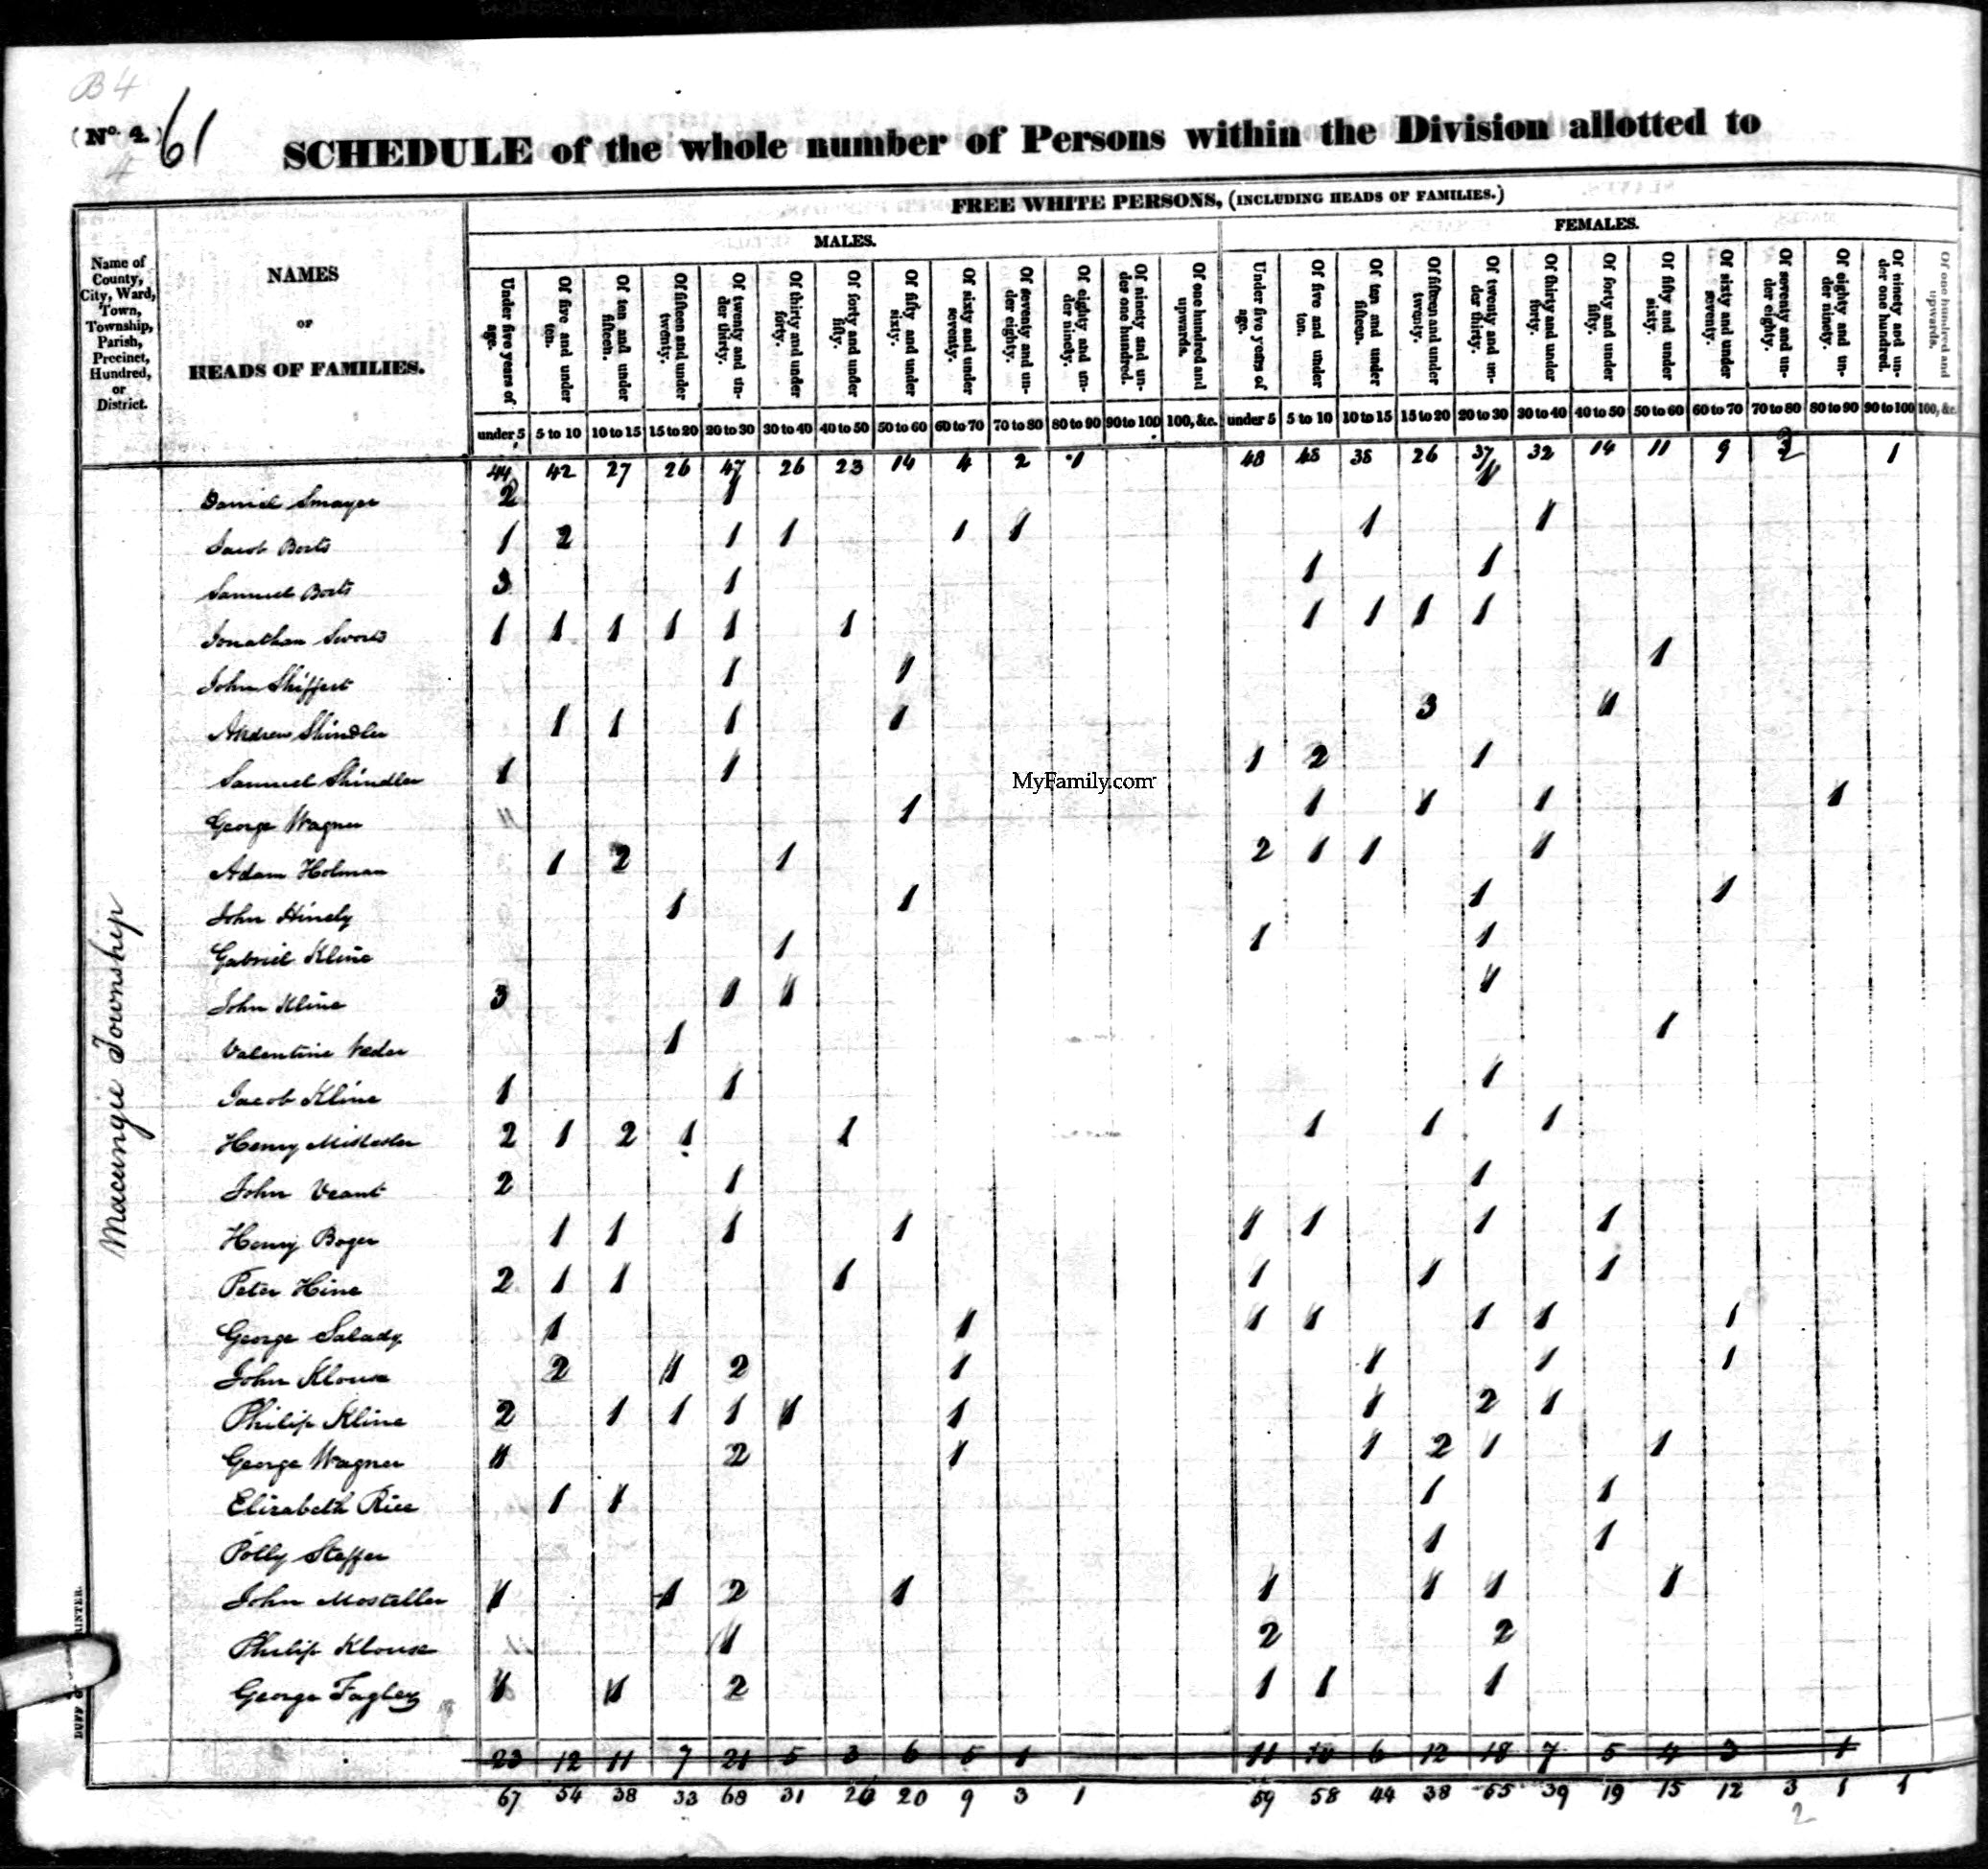 B4
(No. 4.) 61
4
SCHEDULE of the whole number of Persons within the Division allotted to
FREE WHITE PERSONS, (INCLUDING HEADS OF FAMILIES.)
MALES. FEMALES.
Name of County, City, Ward, Town, Township, Parish, Precinct, Hundred, or District.
NAMES
OF
HEADS OF FAMILIES.
Under five years of age. Of five and under ten. Of ten and under fifteen. Of fifteen and under twenty. Of twenty and under thirty. Of thirty and under forty. Of forty and under fifty. Of fifty and under sixty. Of sixty and under seventy. Of seventy and under eighty. Of eighty and under ninety. Of ninety and under one hundred. Of one hundred and upwards. Under five years of age. Of five and under ten. Of ten and under fifteen. Of fifteen and under twenty. Of twenty and under thirty. Of thirty and under forty. Of forty and under fifty. Of fifty and under sixty. Of sixty and under seventy. Of seventy and under eighty. Of eighty and under ninety. Of ninety and under one hundred. Of one hundred and upwards.
under 5 5 to 10 10 to 15 15 to 20 20 to 30 30 to 40 40 to 50 50 to 60 60 to 70 70 to 80 80 to 90 90 to 100 100, &c. under 5 5 to 10 10 to 15 15 to 20 20 to 30 30 to 40 40 to 50 50 to 60 60 to 70 70 to 80 80 to 90 90 to 100 100, &c.
44 42 27 26 47 26 23 14 4 2 1 48 48 38 26 37 32 14 11 9 1
Macungie Township
Daniel Smayer 2 1 1
Jacob Borts 1 2 1 1 1 1 1 1
Samuel Borts 3 1 1 1
Jonathan Swords 1 1 1 1 1 1 1 1 1 1
John Shiffert 1 1 1
Andrew Shindler 1 1 1 1 3 1
Samuel Shindler 1 1 1 2 1
George Wagner 1 1 1 1 1
Adam Holman 1 2 1 2 1 1 1
John Hinely 1 1 1 1
Gabriel Kline 1 1 1
John Kline 3 1 1 1
Valentine 1 1
Jacob Kline 1 1 1
Henry 2 1 2 1 1 1 1 1
John Veant 2 1 1
Henry Boger 1 1 1 1 1 1 1 1
Peter Hine 2 1 1 1 1 1 1
George Salady 1 1 1 1 1 1 1
John Klouse 2 1 2 1 1 1 1
Philip Kline 2 1 1 1 1 1 1 2 1
George Wagner 1 2 1 1 2 1 1
Elizabeth Rice 1 1 1 1
Polly Steffer 1 1
John Mosteller 1 1 2 1 1 1 1 1
Philip Klouse 1 2 2
George Fagley 1 1 2 1 1 1
23 12 11 7 21 5 3 6 5 1 11 10 6 12 18 7 5 4 3 1
67 54 38 33 68 31 26 20 9 3 1 59 58 44 38 55 39 19 15 12 3 1 1
2
MyFamily.com